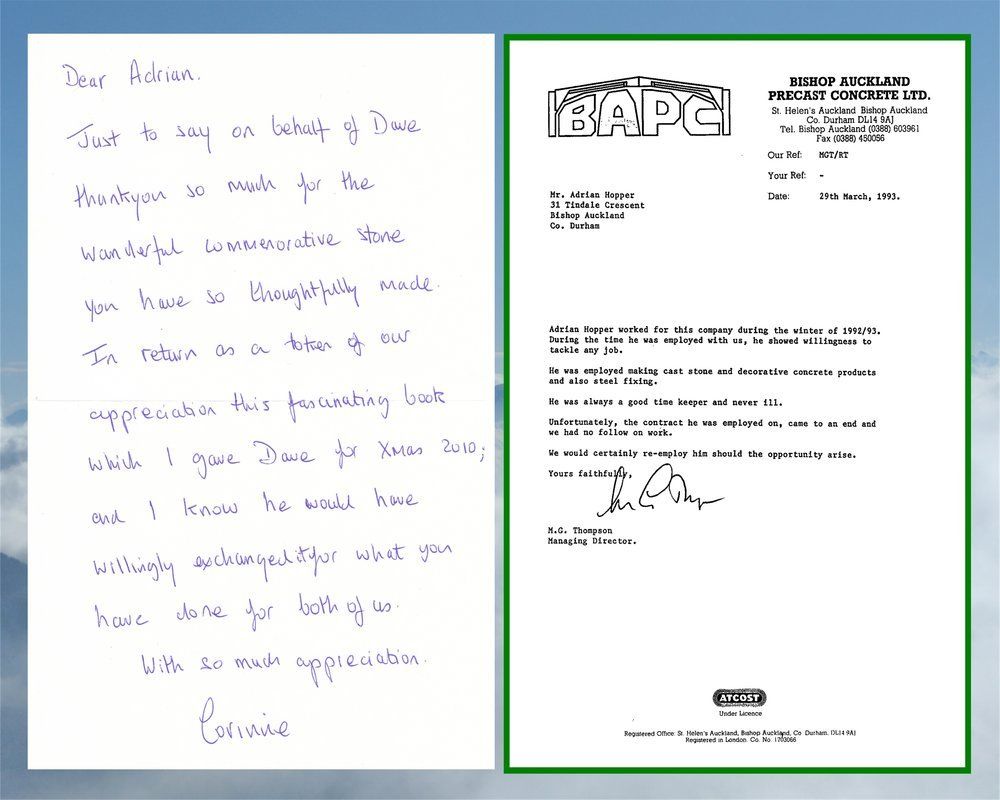 Dear Adrian.
Just to say on behalf of Dave
thankyou so much for the
wonderful commenorative stone
you have so thoughtfully made.
In return as a token of our
appreciation this fascinating book
which I gave Dave for Xmas 2010;
and I know he would have
willingly exchangeditfor what you
have done for both of us.
With so much appreciation.
Corinne
BAPC
BISHOP AUCKLAND
PRECAST CONCRETE LTD.
St. Helen's Auckland Bishop Auckland
Co. Durham DL14 9AJ
Tel. Bishop Auckland (0388) 603961
Fax (0388) 450056
Our Ref: MGT/RT
Your Ref: -
Date: 29th March, 1993.
Mr. Adrian Hopper
31 Tindale Crescent
Bishop Auckland
Co. Durham
Adrian Hopper worked for this company during the winter of 1992/93.
During the time he was employed with us, he showed willingness to
tackle any job.
He was employed making cast stone and decorative concrete products
and also steel fixing.
He was always a good time keeper and never ill.
Unfortunately, the contract he was employed on, came to an end and
we had no follow on work.
We would certainly re-employ him should the opportunity arise.
Yours faithfully,
M.G. Thompson
Managing Director.
ATCOST
Under Licence
Registered Office: St. Helen's Auckland, Bishop Auckland, Co Durham. DL14 9AJ
Registered in London. Co. No. 1703066